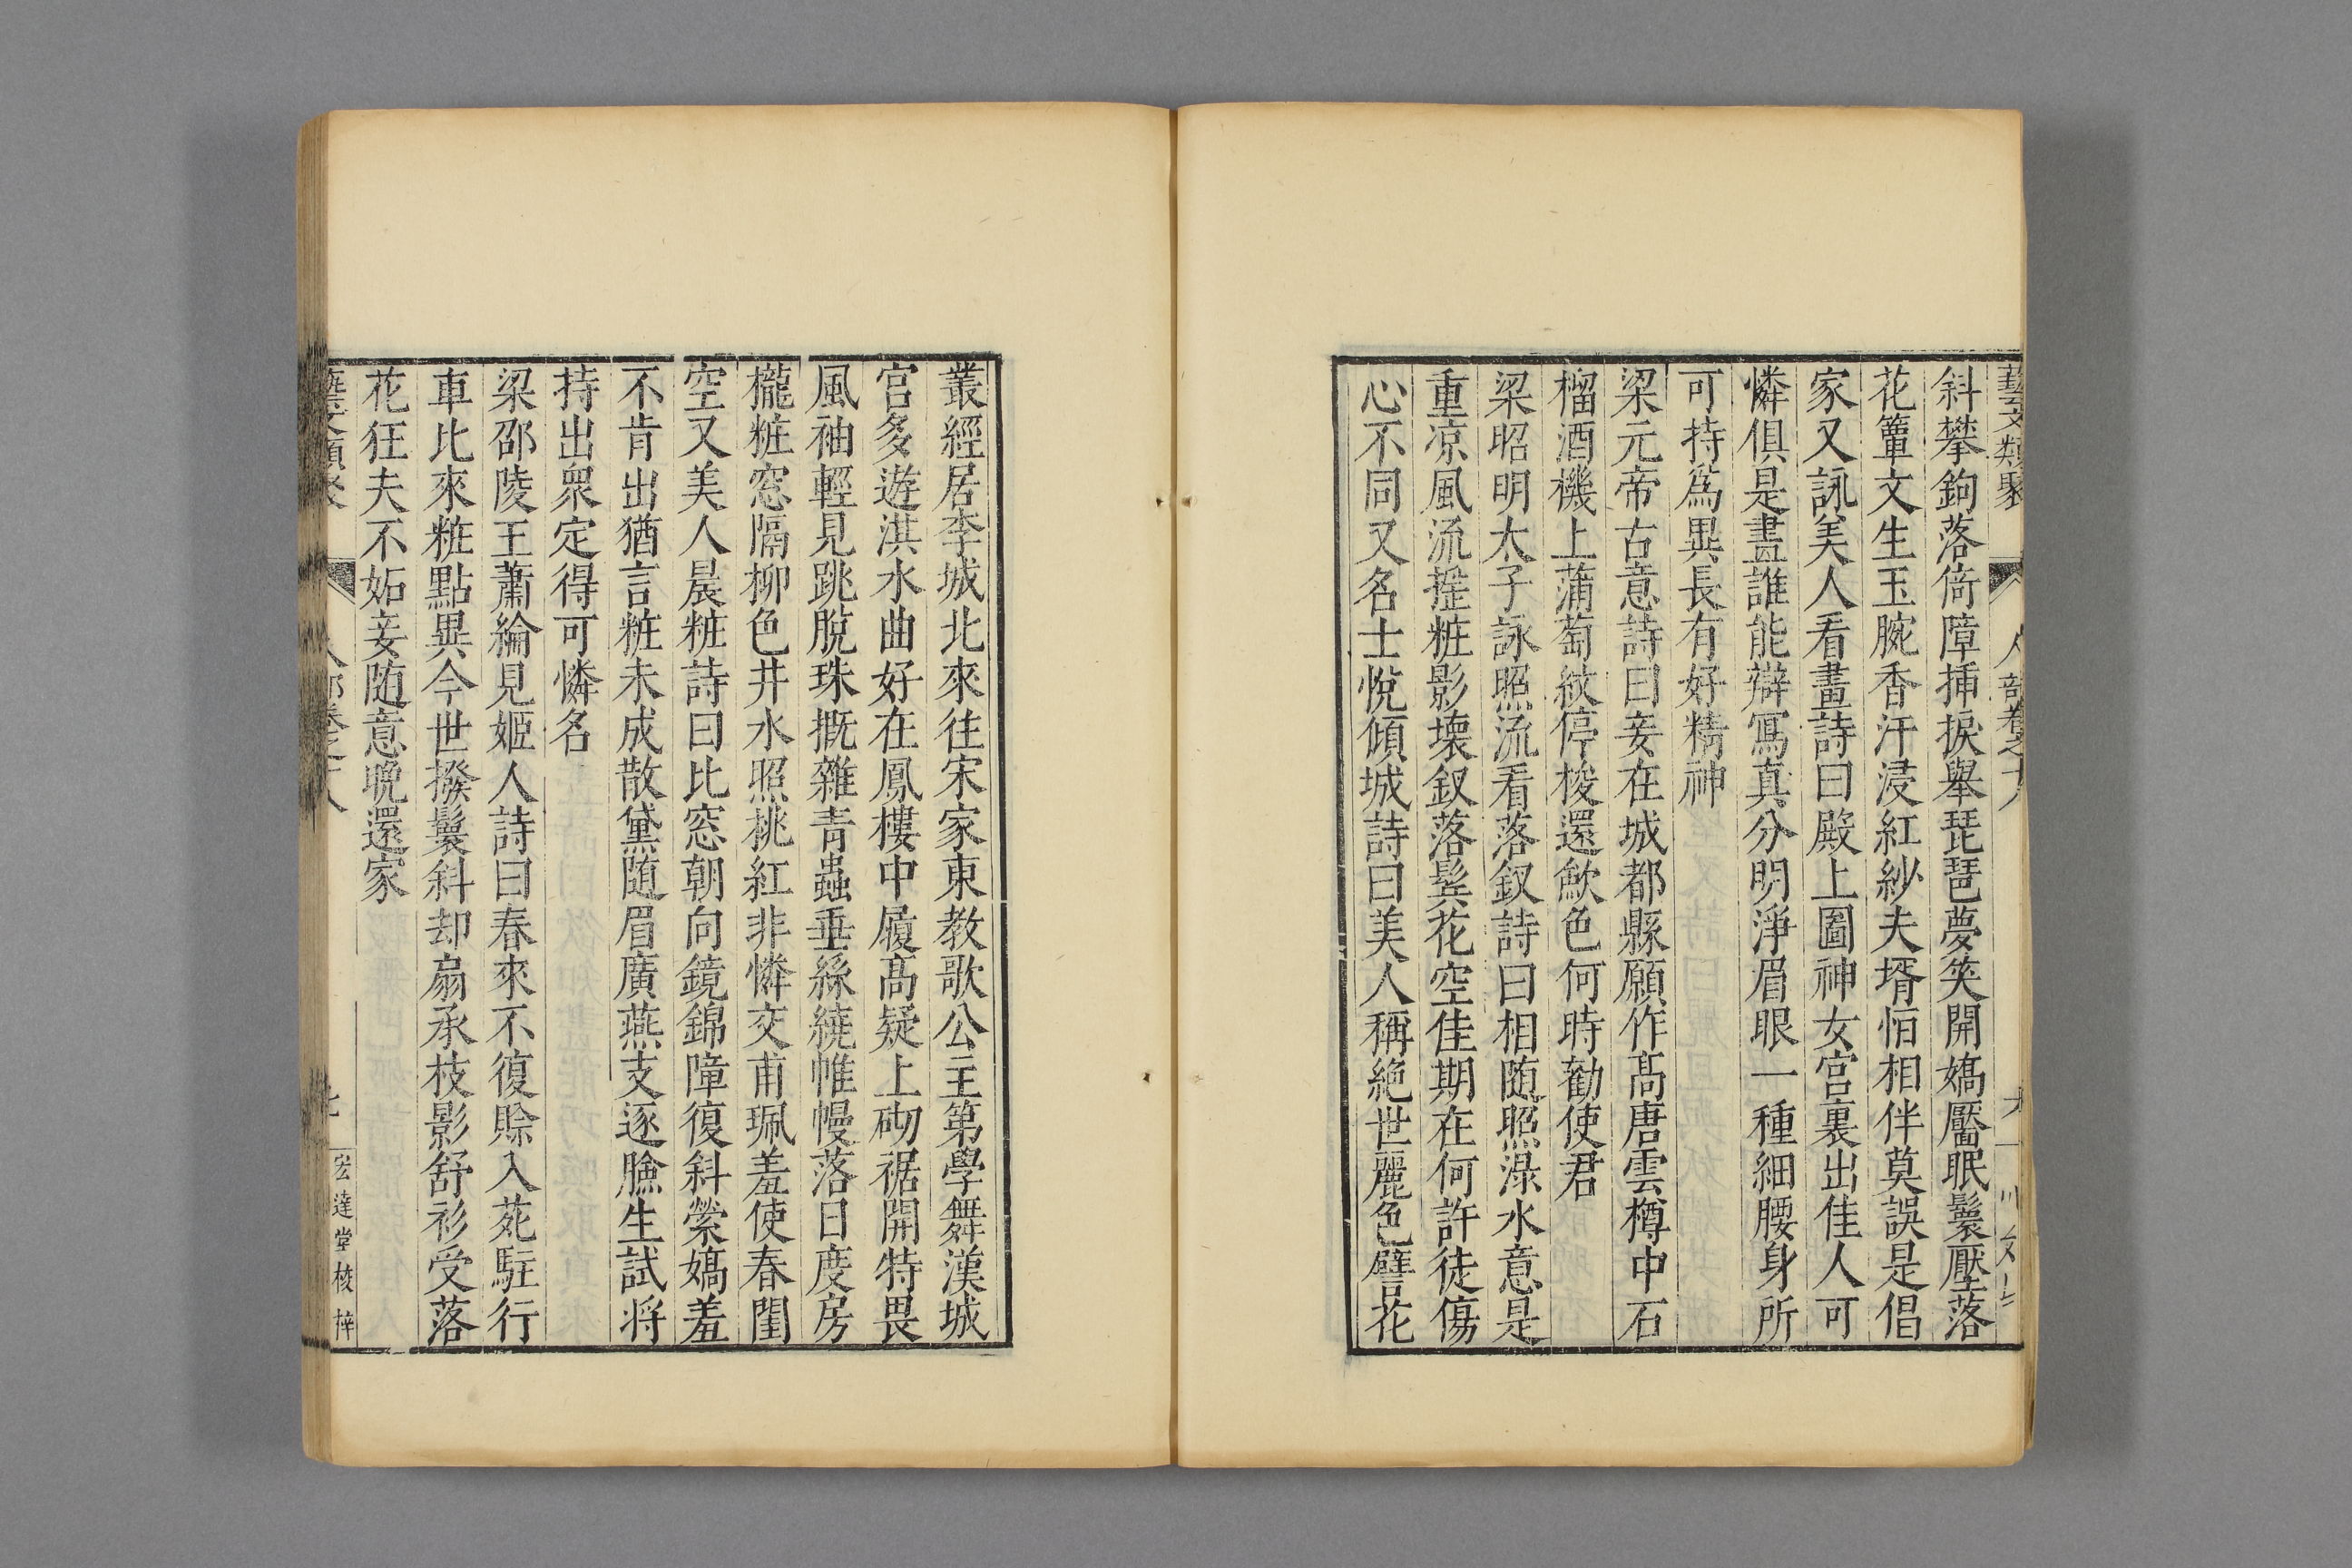 藝文類聚 人部卷之十八
斜攀鉤落倚障揷捩舉琵琶夢笑開嬌靨眠鬟壓落
花簟文生玉腕香汗浸紅紗夫壻怕相伴莫誤是倡
家又詠美人看畫詩曰殿上圖神女宮裏出佳人可
憐俱是畫誰能辯寫真分明淨眉眼一種細腰身所
可持爲異長有好精神
梁元帝古意詩曰妾在城都縣願作高唐雲樽中石
榴酒機上蒲萄紋停梭還歛色何時勸使君
梁昭明太子詠照流看落釵詩曰相随照渌水意是
重凉風流摇粧影壞釵落鬂花空佳期在何許徒傷
心不同又名士悅傾城詩曰美人稱絶世麗色譬花
叢經居李城北來往宋家東教歌公主第學舞漢城
宮多遊淇水曲好在鳳樓中履高疑上砌裾開特畏
風袖輕見跳脫珠概雜青蟲垂絲繞帷幔落日度房
櫳粧窓隔柳色井水照桃紅非憐交甫珮羞使春閨
空又美人晨粧詩曰比窓朝向鏡錦障復斜縈嬌羞
不肯出猶言粧未成散黛随眉廣燕支逐臉生試將
持出衆定得可憐名
梁邵陵王蕭綸見姬人詩曰春來不復賒入苑駐行
車比來粧點異今世撥鬟斜却扇承枝影舒衫受落
花狂夫不妬妾随意晩還家
宏達堂校梓